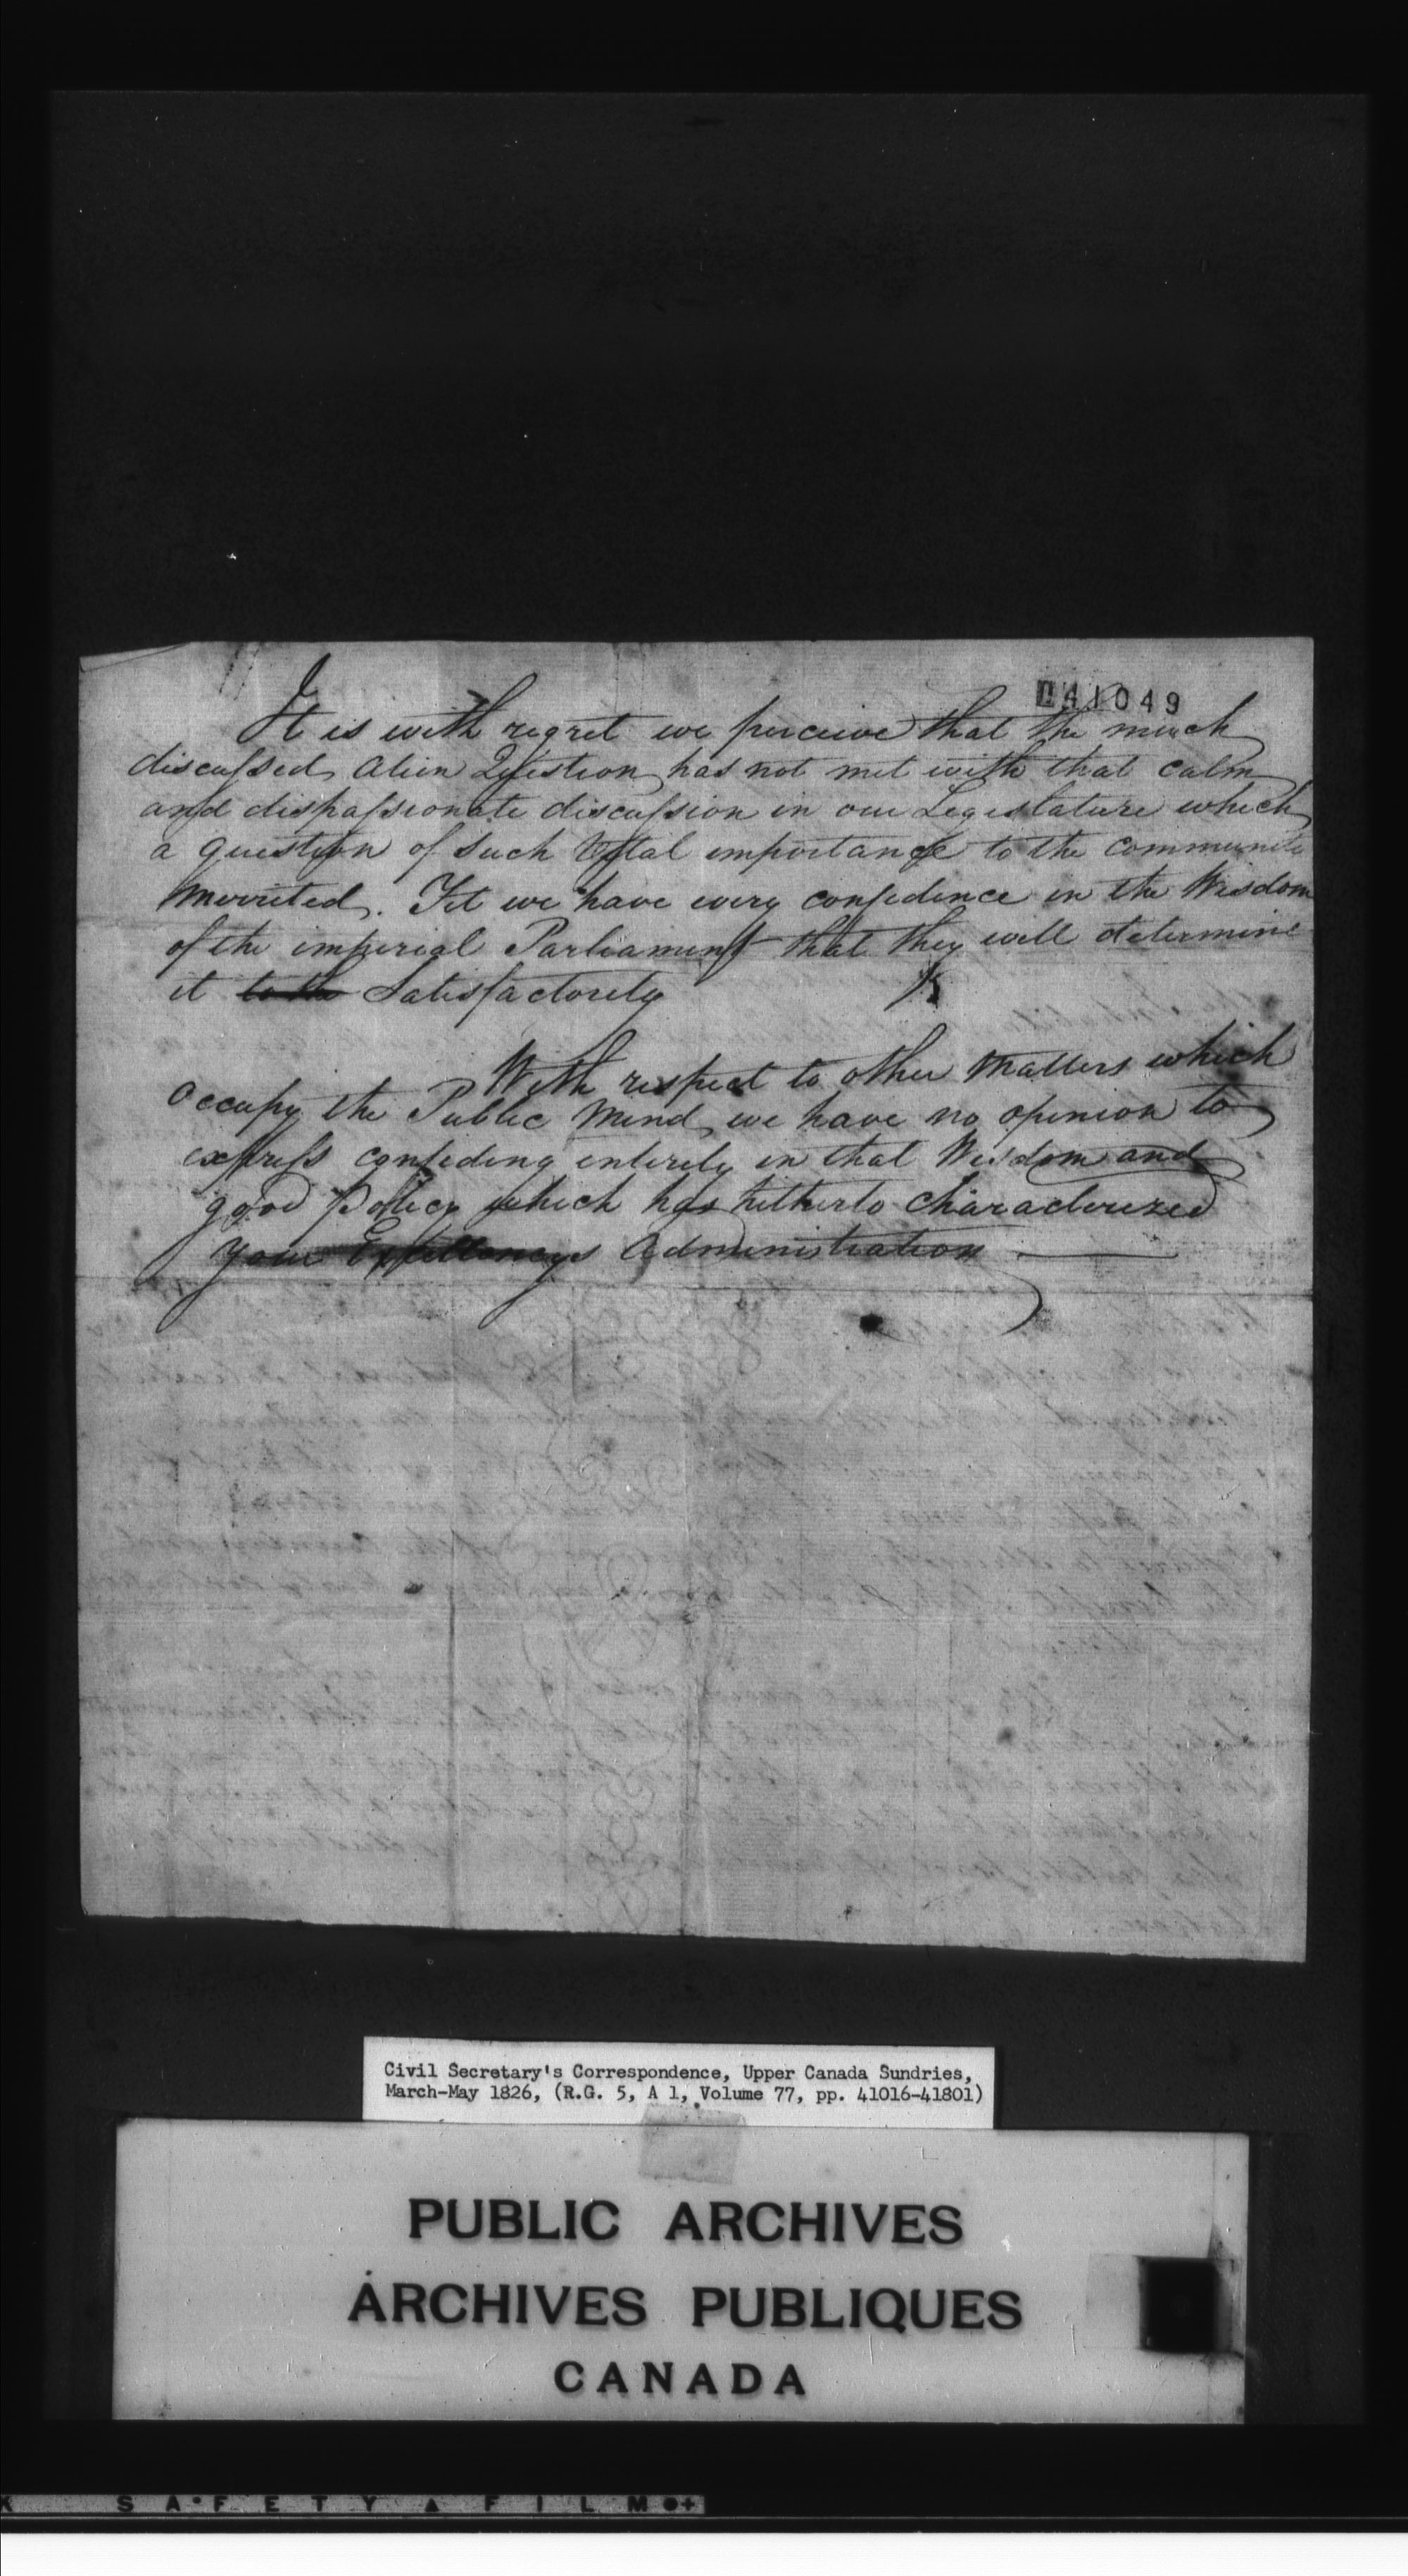 041049
It is with regret we perceive that the much
discussed Alien Question has not met with that calm
and dispassionate discussion in our Legislature which
a question of such Vital importance to the communite
merrited. Yet we have every confidence in the Wisdom
of the imperial Parliament that they will determine
it to the Satisfactorily
With respect to other Matters which
Occupy the Public Mind we have no opinion to
express confiding entirely in that Wisdom and
good Policy which has hitherto Characterized
your Excellencys Administration
Civil Secretary's Correspondence, Upper Canada Sundries,
March-May 1826, (R.G. 5, A 1, Volume 77, pp. 41016-41801)
PUBLIC ARCHIVES
ARCHIVES PUBLIQUES
CANADA
SAFETY FILM